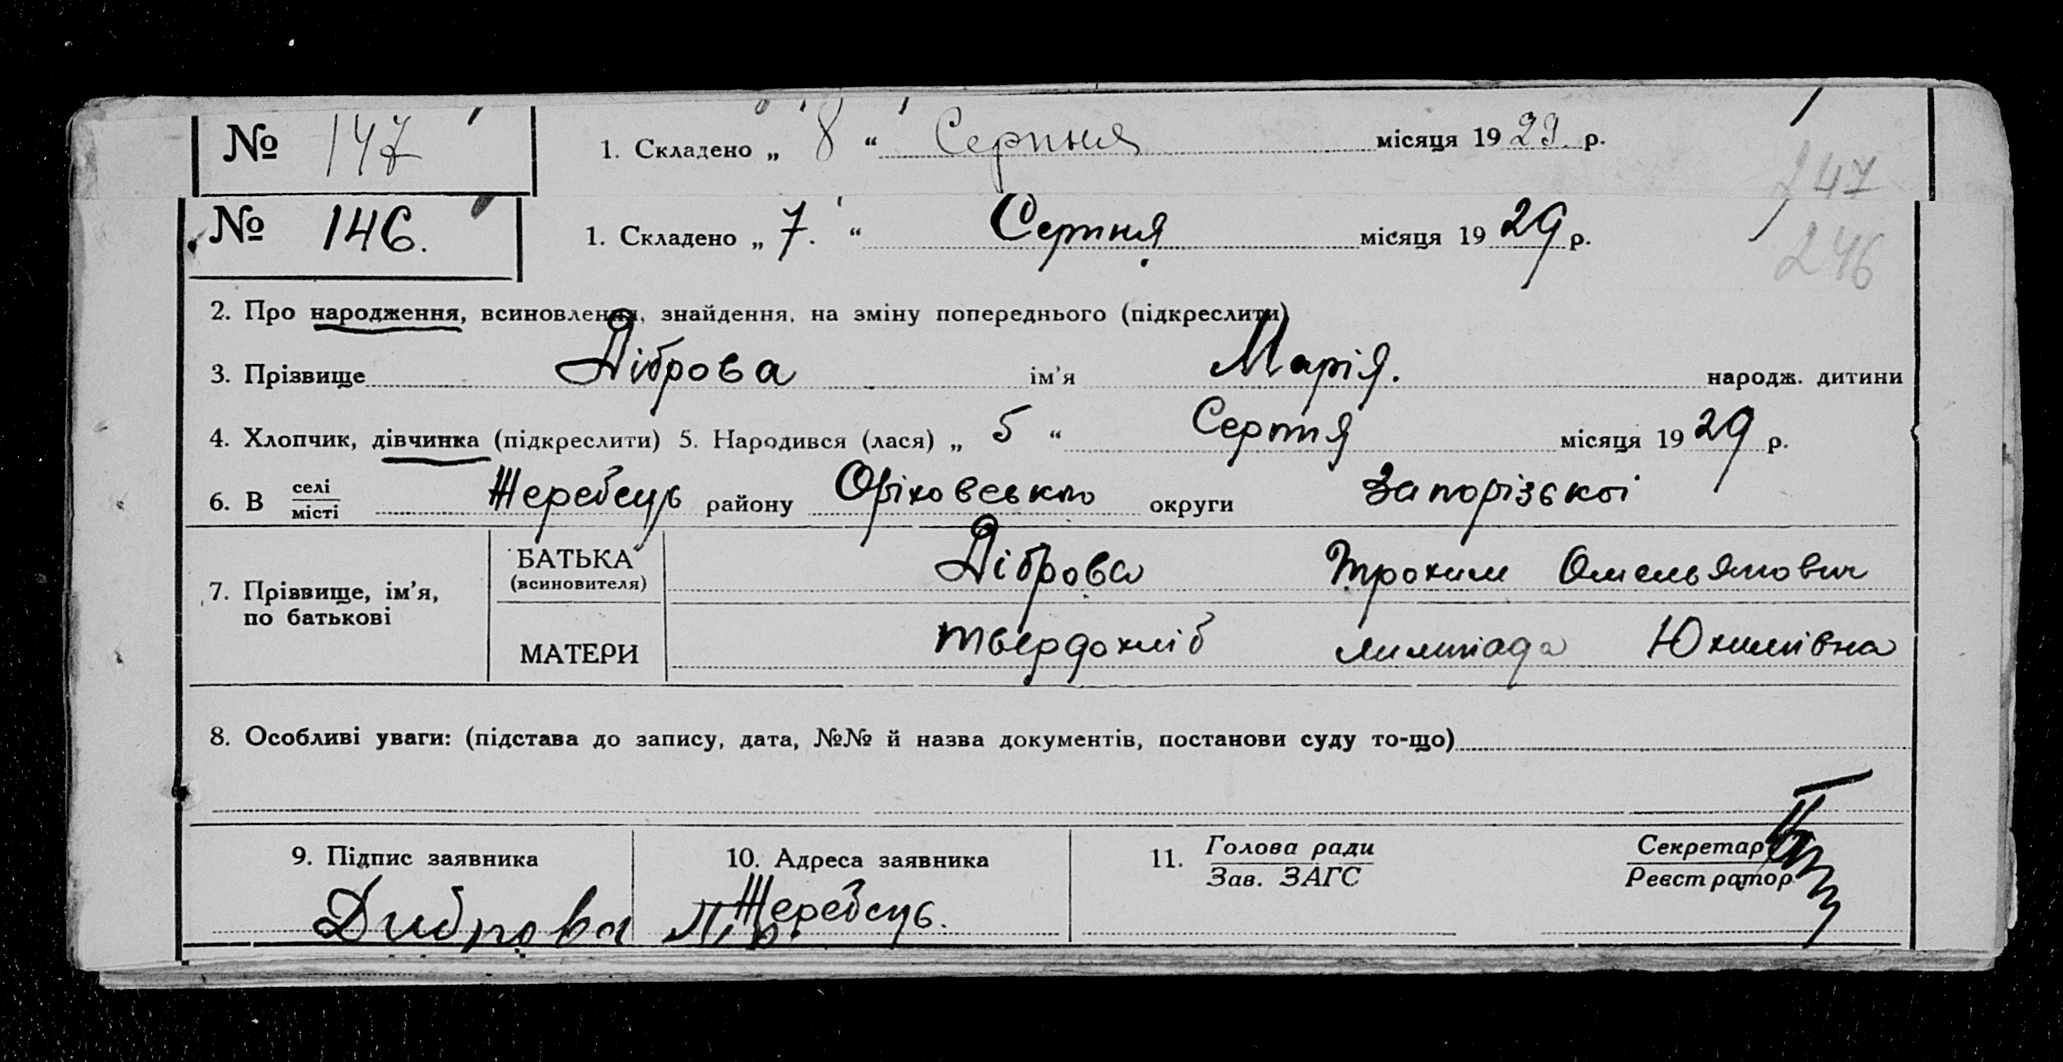 № 147 1. Складено „ 8 “ Серпня місяця 1929. р.
247
№ 146. 1. Складено „ 7. “ Серпня місяця 1929 р.
246
2. Про народження, всиновлення, знайдення, на зміну попереднього (підкреслити)
3. Прізвище Діброва ім’я Марія. народж. дитини
4. Хлопчик, дівчинка (підкреслити) 5. Народився (лася) „ 5 “ Серпня місяця 1929 р.
6. В селі місті Жеребець району Оріховського округи Запорізької
7. Прізвище, ім’я, по батькові
БАТЬКА (всиновителя) Діброва Трохим Омельянович
МАТЕРИ Твердохліб Лимпіада Юхимівна
8. Особливі уваги: (підстава до запису, дата, №№ й назва документів, постанови суду то-що)
9. Підпис заявника 10. Адреса заявника 11. Голова ради Секретар
Зав. ЗАГС Реєстратор
Диброва Жеребець.